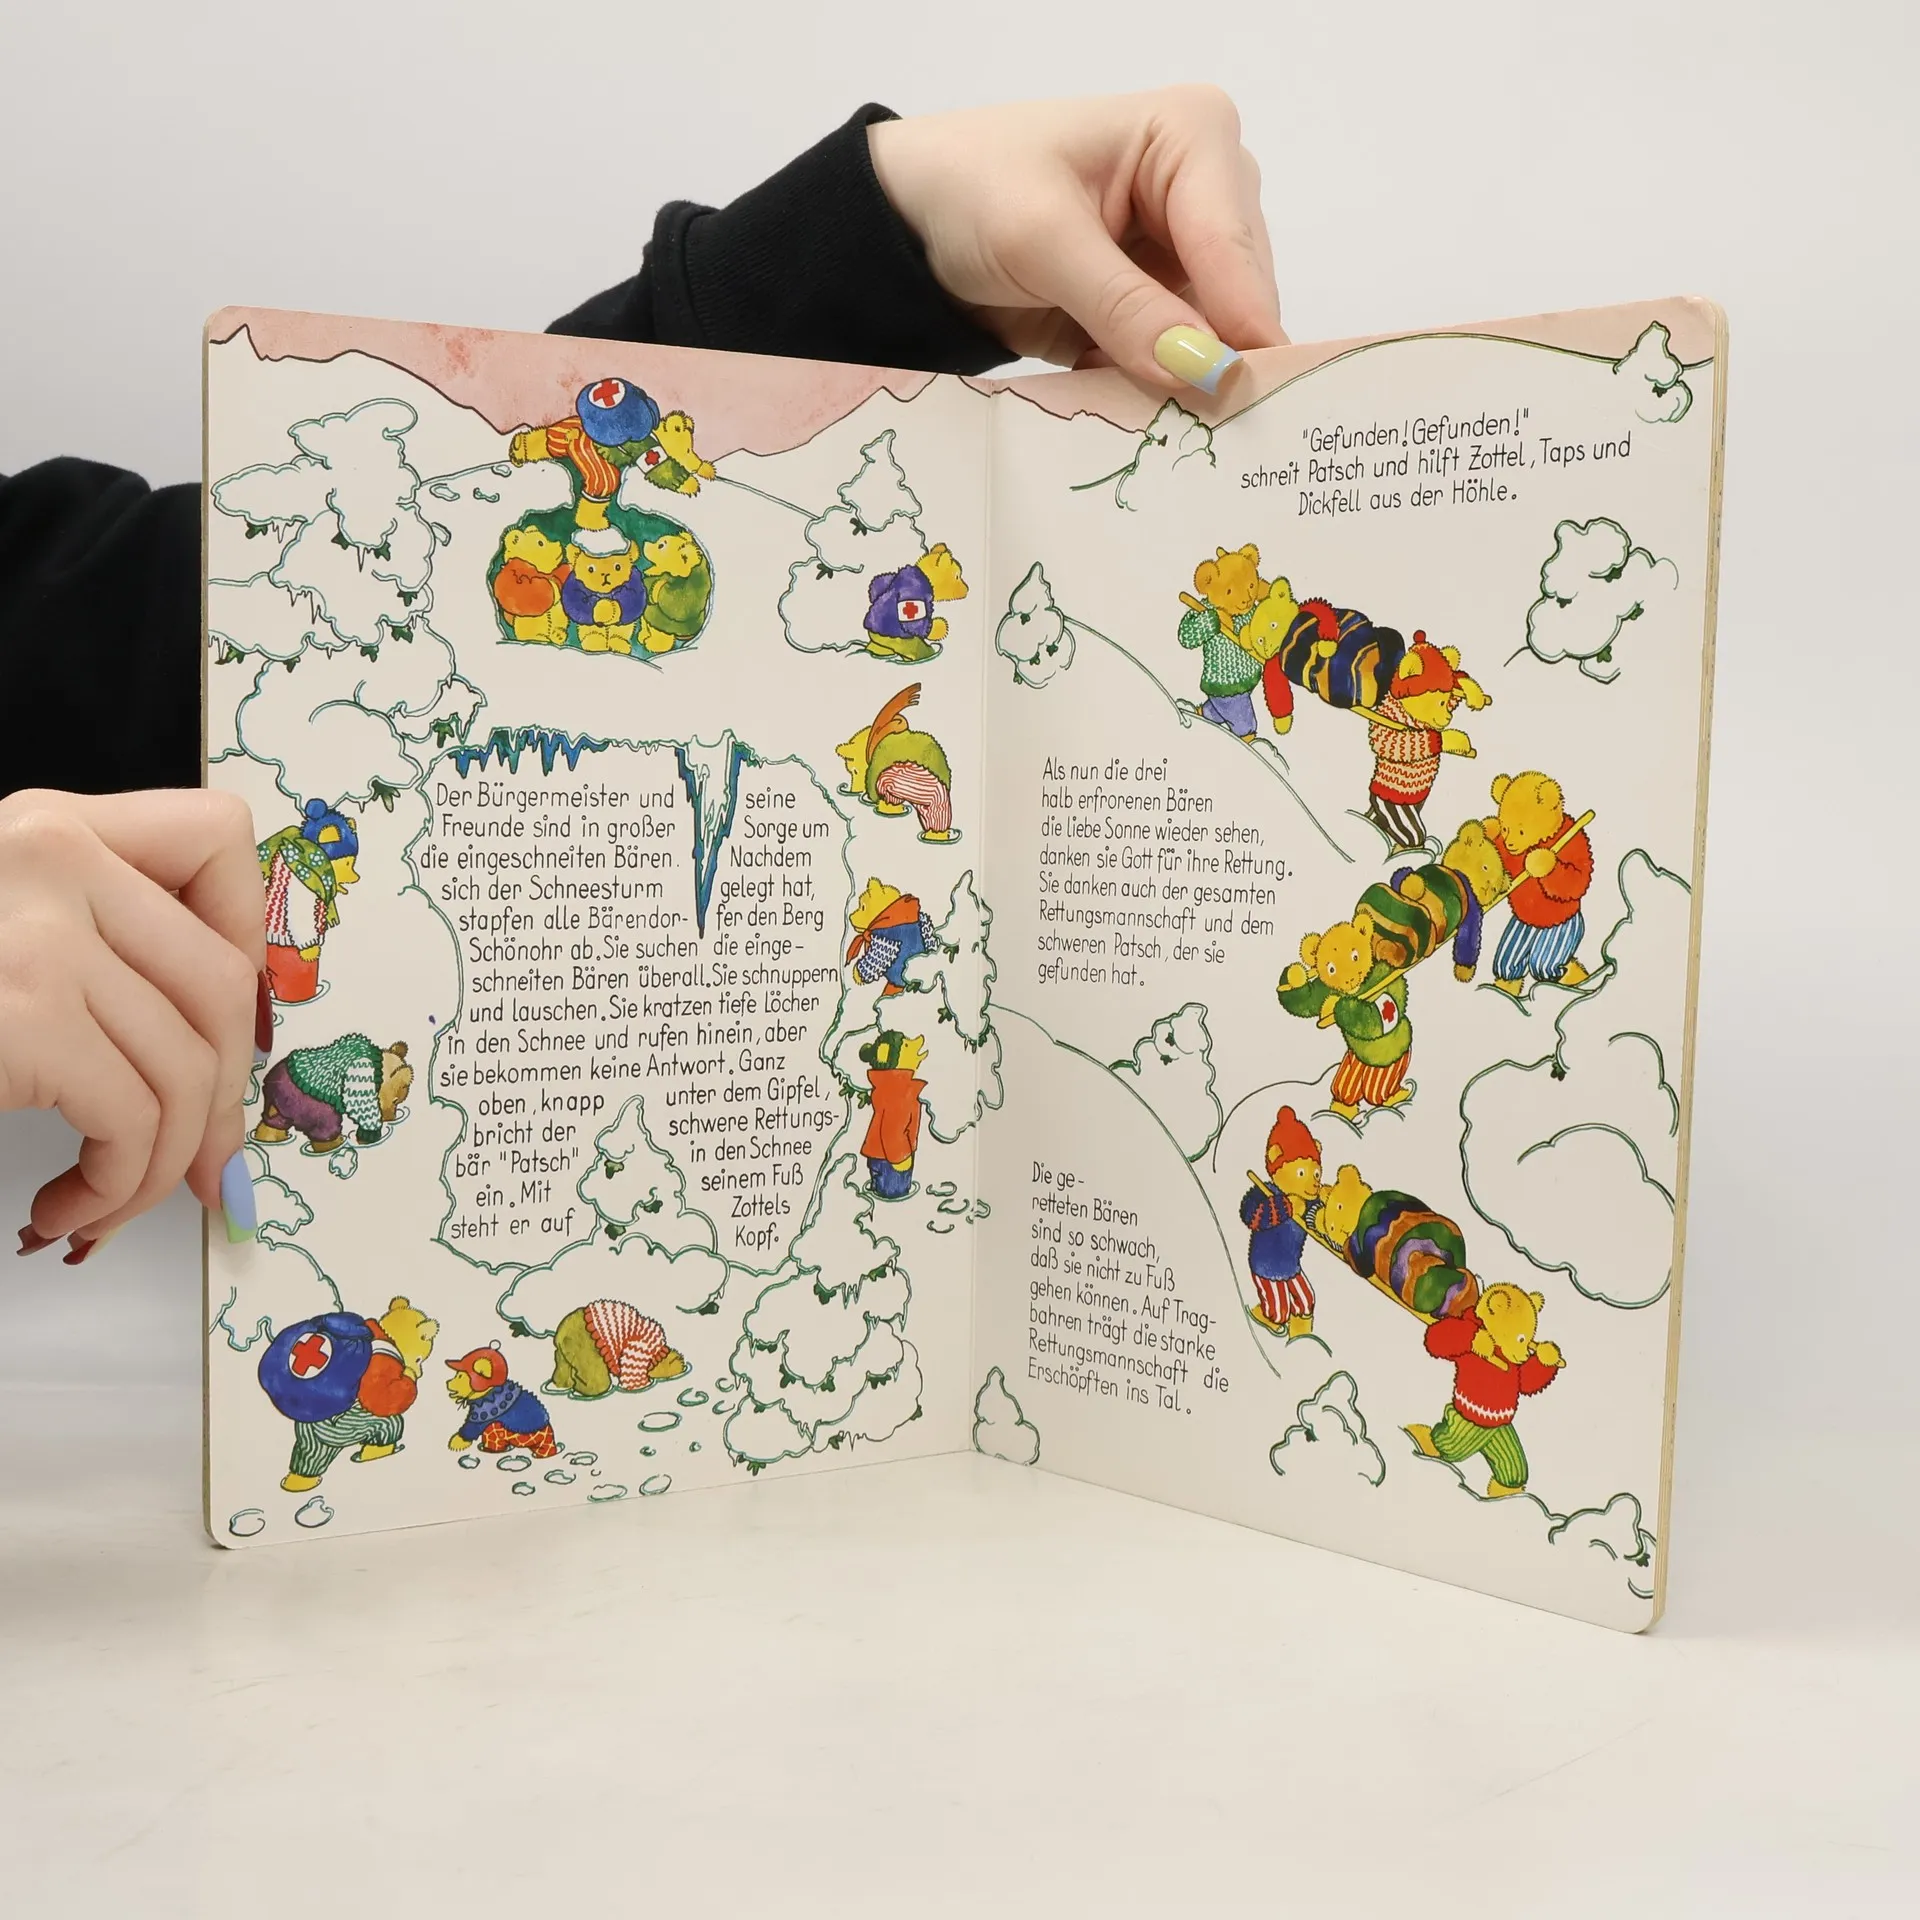 Der Bürgermeister und seine
Freunde sind in großer Sorge um
die eingeschneiten Bären. Nachdem
sich der Schneesturm gelegt hat,
stapfen alle Bärendor- fer den Berg
Schönohr ab. Sie suchen die einge-
schneiten Bären überall. Sie schnuppern
und lauschen. Sie kratzen tiefe Löcher
in den Schnee und rufen hinein, aber
sie bekommen keine Antwort. Ganz
oben, knapp unter dem Gipfel,
bricht der schwere Rettungs-
bär "Patsch" in den Schnee
ein. Mit seinem Fuß
steht er auf Zottels
Kopf.
"Gefunden! Gefunden!"
schreit Patsch und hilft Zottel, Taps und
Dickfell aus der Höhle.
Als nun die drei
halb erfrorenen Bären
die liebe Sonne wieder sehen,
danken sie Gott für ihre Rettung.
Sie danken auch der gesamten
Rettungsmannschaft und dem
schweren Patsch, der sie
gefunden hat.
Die ge-
retteten Bären
sind so schwach,
daß sie nicht zu Fuß
gehen können. Auf Trag-
bahren trägt die starke
Rettungsmannschaft die
Erschöpften ins Tal.